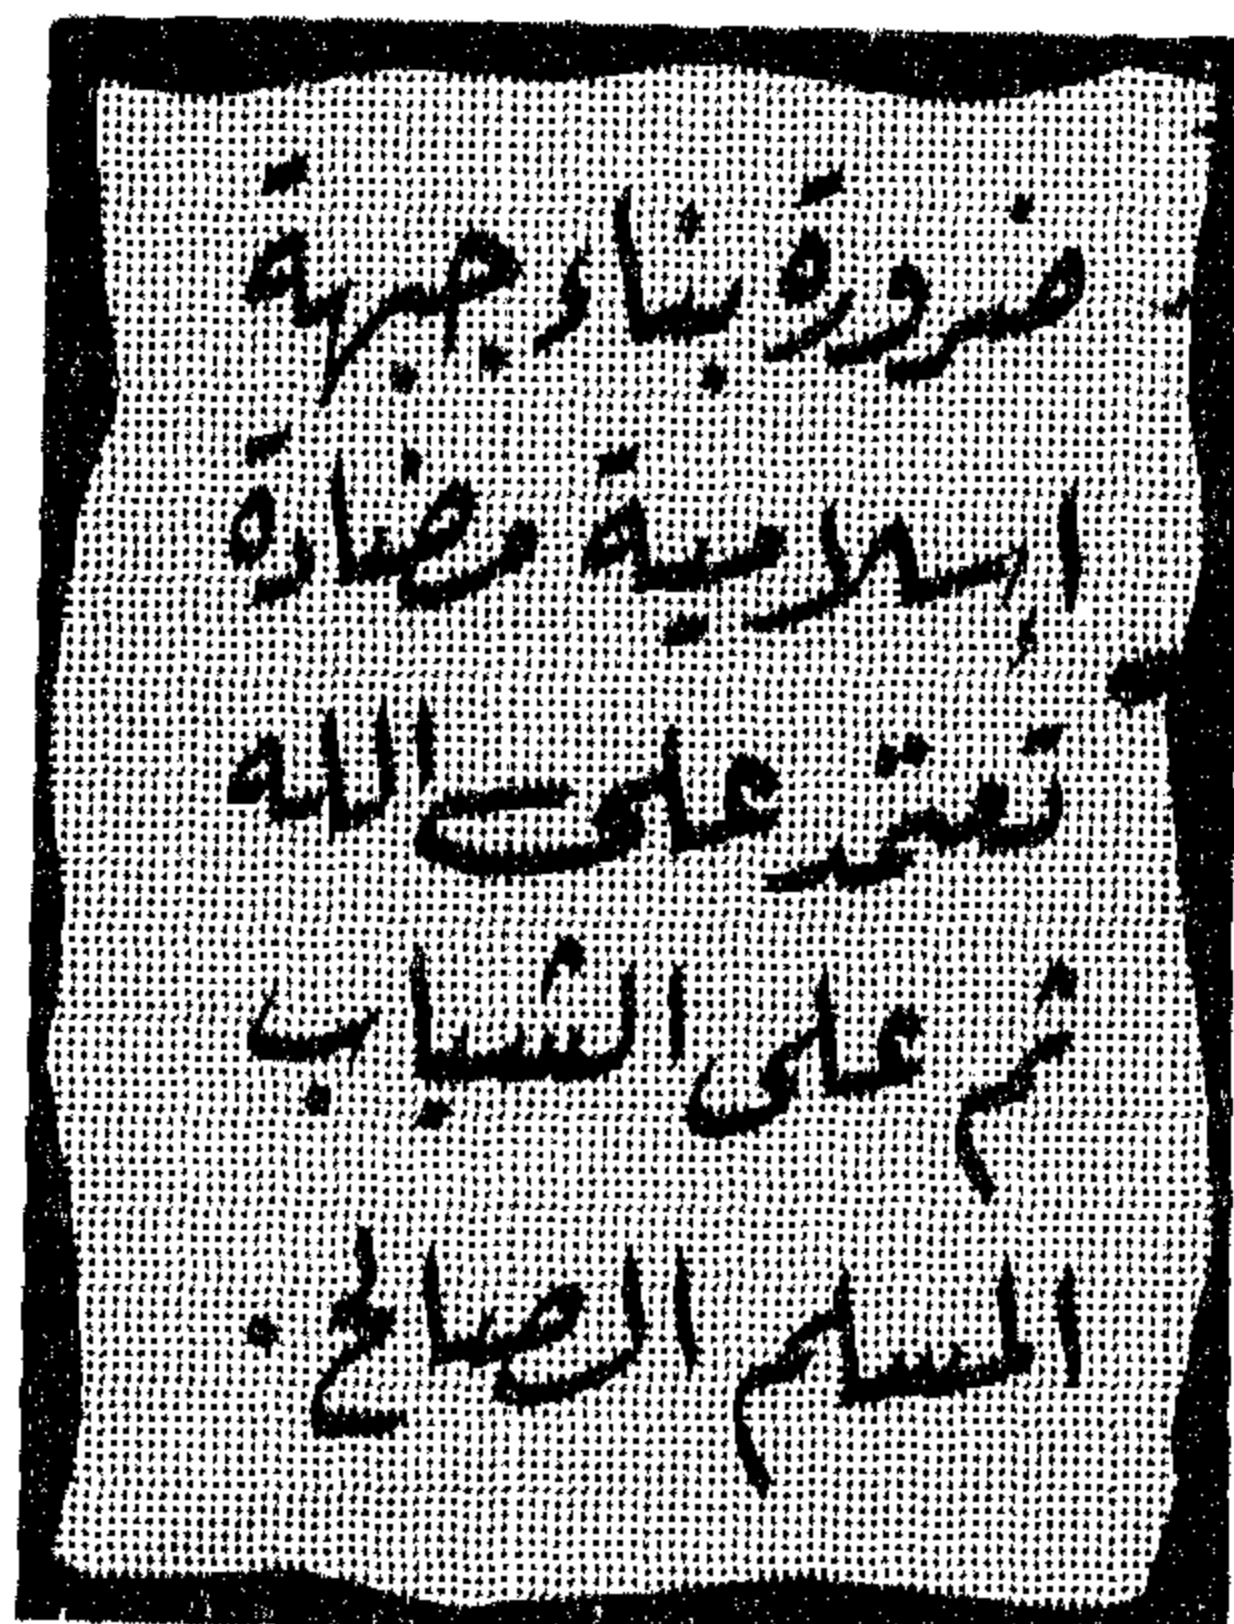 ضرورة بناء جبهة
إسلامية مضادة
تعتمد على الله
ثم على الشباب
المسلم الصالح .